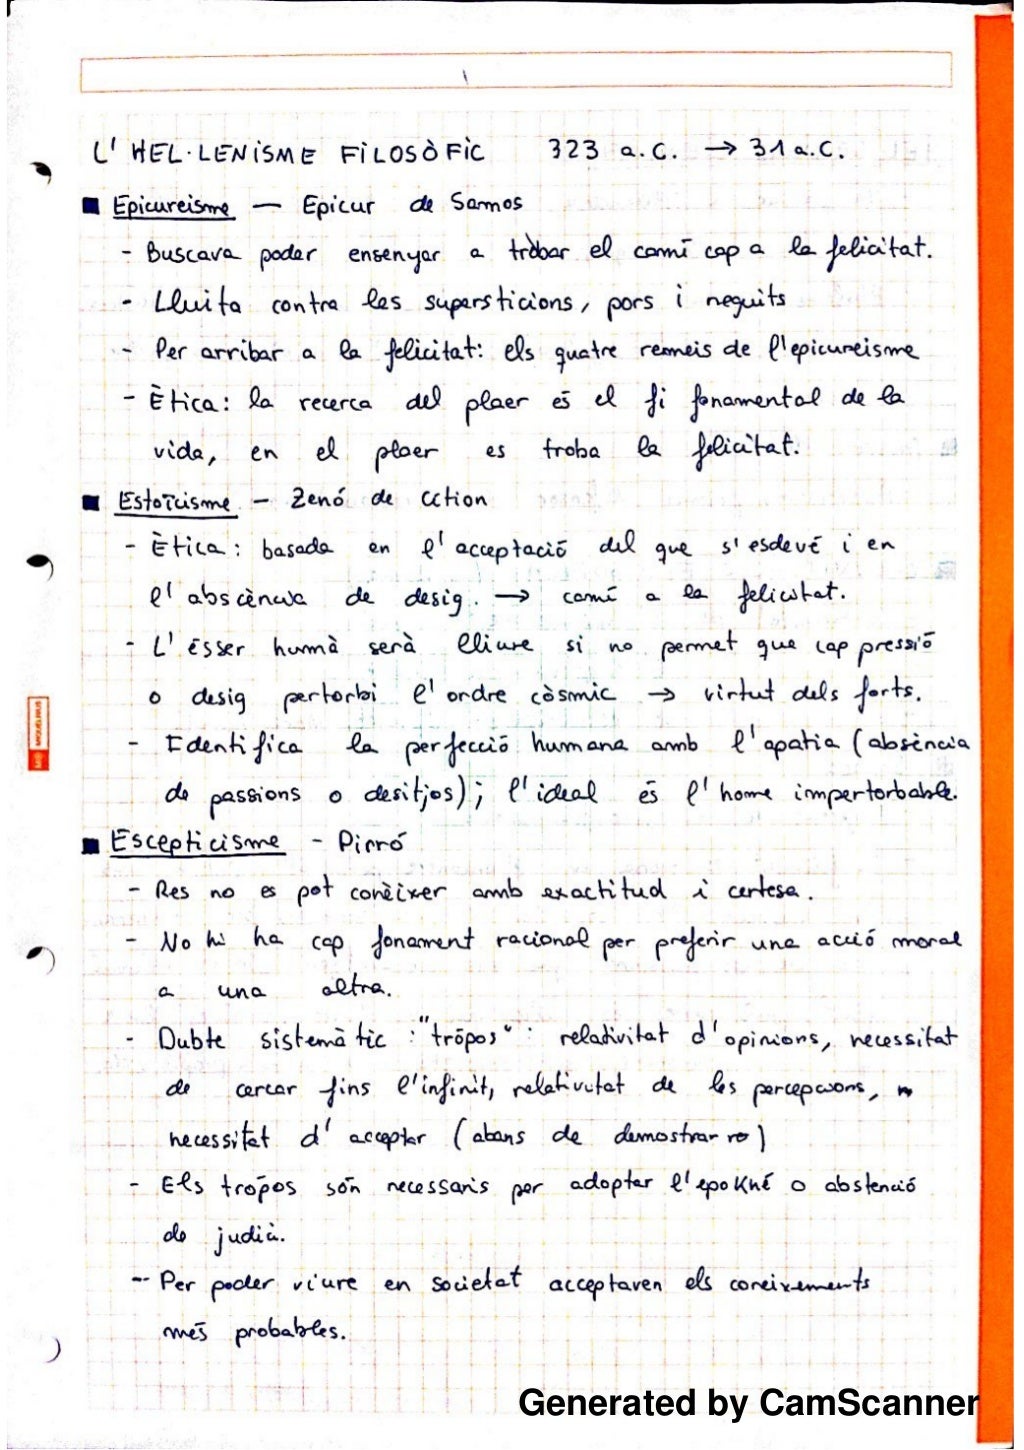 L' HEL·LENISME FILOSÒFIC 323 a.C. → 31 a.C.
Epicureisme — Epicur de Samos
- Buscava poder ensenyar a tròbar el camí cap a la felicitat.
- Lluita contra les supersticions, pors i neguits
- Per arribar a la felicitat: els quatre remeis de l'epicureisme
- Ètica: la recerca del plaer és el fi fonamental de la
vida, en el plaer es troba la felicitat.
Estoïcisme - Zenó de Cition
- Ètica: basada en l'acceptació del que s'esdevé i en
l'abscència de desig. → camí a la felicitat.
- L'ésser humà serà lliure si no permet que cap pressió
o desig pertorbi l'ordre còsmic → virtut dels forts.
- Identifica la perfecció humana amb l'apatia (absència
de passions o desitjos); l'ideal és l'home impertorbable.
Escepticisme - Pirró
- Res no es pot conèixer amb exactitud i certesa.
- No hi ha cap fonament racional per preferir una acció moral
a una altra.
- Dubte sistemàtic: "trópos": relativitat d'opinions, necessitat
de cercar fins l'infinit, relativitat de les percepcions,
necessitat d'acceptar (abans de demostrar-ro)
- Els trópos són necessaris per adoptar l'epokhé o abstenció
de judici.
- Per poder viure en societat acceptaven els coneixements
més probables.
MIQUELRIUS
Generated by CamScanner